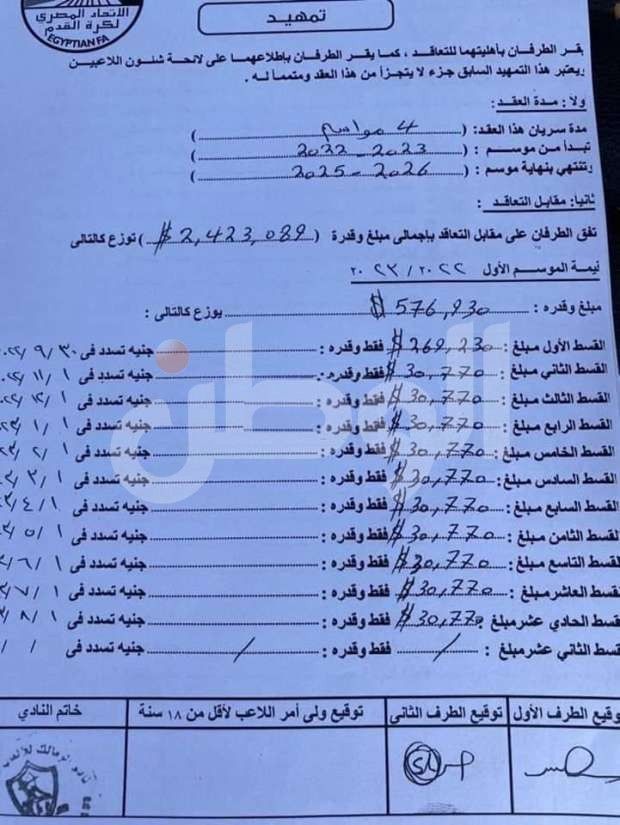 الاتحاد المصري
لكرة القدم
EGYPTIAN FA
تمهيد
يقر الطرفان بأهليتهما للتعاقد ، كما يقر الطرفان بإطلاعهما على لائحة شئون اللاعبين
ويعتبر هذا التمهيد السابق جزء لا يتجزأ من هذا العقد ومتمماً له .
ولاً : مدة العقد :
مدة سريان هذا العقد : ( 4 مواسم )
تبدأ من موسم : ( 2022 - 2023 )
وتنتهي بنهاية موسم : ( 2025 - 2026 )
ثانياً : مقابل التعاقد :
تفق الطرفان على مقابل التعاقد بإجمالى مبلغ وقدرة ( $ 2,423,089 ) توزع كالتالى
قيمة الموسم الأول ٢٠٢٢ / ٢٠٢٣
مبلغ وقدره : $ 576,930 يوزع كالتالى :
القسط الأول مبلغ : $ 269,230 فقط وقدره : جنيه تسدد فى ٩/٣٠
القسط الثانى مبلغ : $ 30,770 فقط وقدره : جنيه تسدد فى ١١/١
القسط الثالث مبلغ : $ 30,770 فقط وقدره : جنيه تسدد فى ١٢/١
القسط الرابع مبلغ : $ 30,770 فقط وقدره : جنيه تسدد فى ١/١
القسط الخامس مبلغ : $ 30,770 فقط وقدره : جنيه تسدد فى ٢/١
القسط السادس مبلغ : $ 30,770 فقط وقدره : جنيه تسدد فى ٣/١
القسط السابع مبلغ : $ 30,770 فقط وقدره : جنيه تسدد فى ٤/١
القسط الثامن مبلغ : $ 30,770 فقط وقدره : جنيه تسدد فى ٥/١
القسط التاسع مبلغ : $ 30,770 فقط وقدره : جنيه تسدد فى ٦/١
القسط العاشر مبلغ : $ 30,770 فقط وقدره : جنيه تسدد فى ٧/١
القسط الحادي عشر مبلغ : $ 30,770 فقط وقدره : جنيه تسدد فى ٨/١
القسط الثاني عشر مبلغ : / فقط وقدره : / جنيه تسدد فى / /
الوطن
توقيع الطرف الأول توقيع الطرف الثانى توقيع ولى أمر اللاعب لأقل من ١٨ سنة خاتم النادي